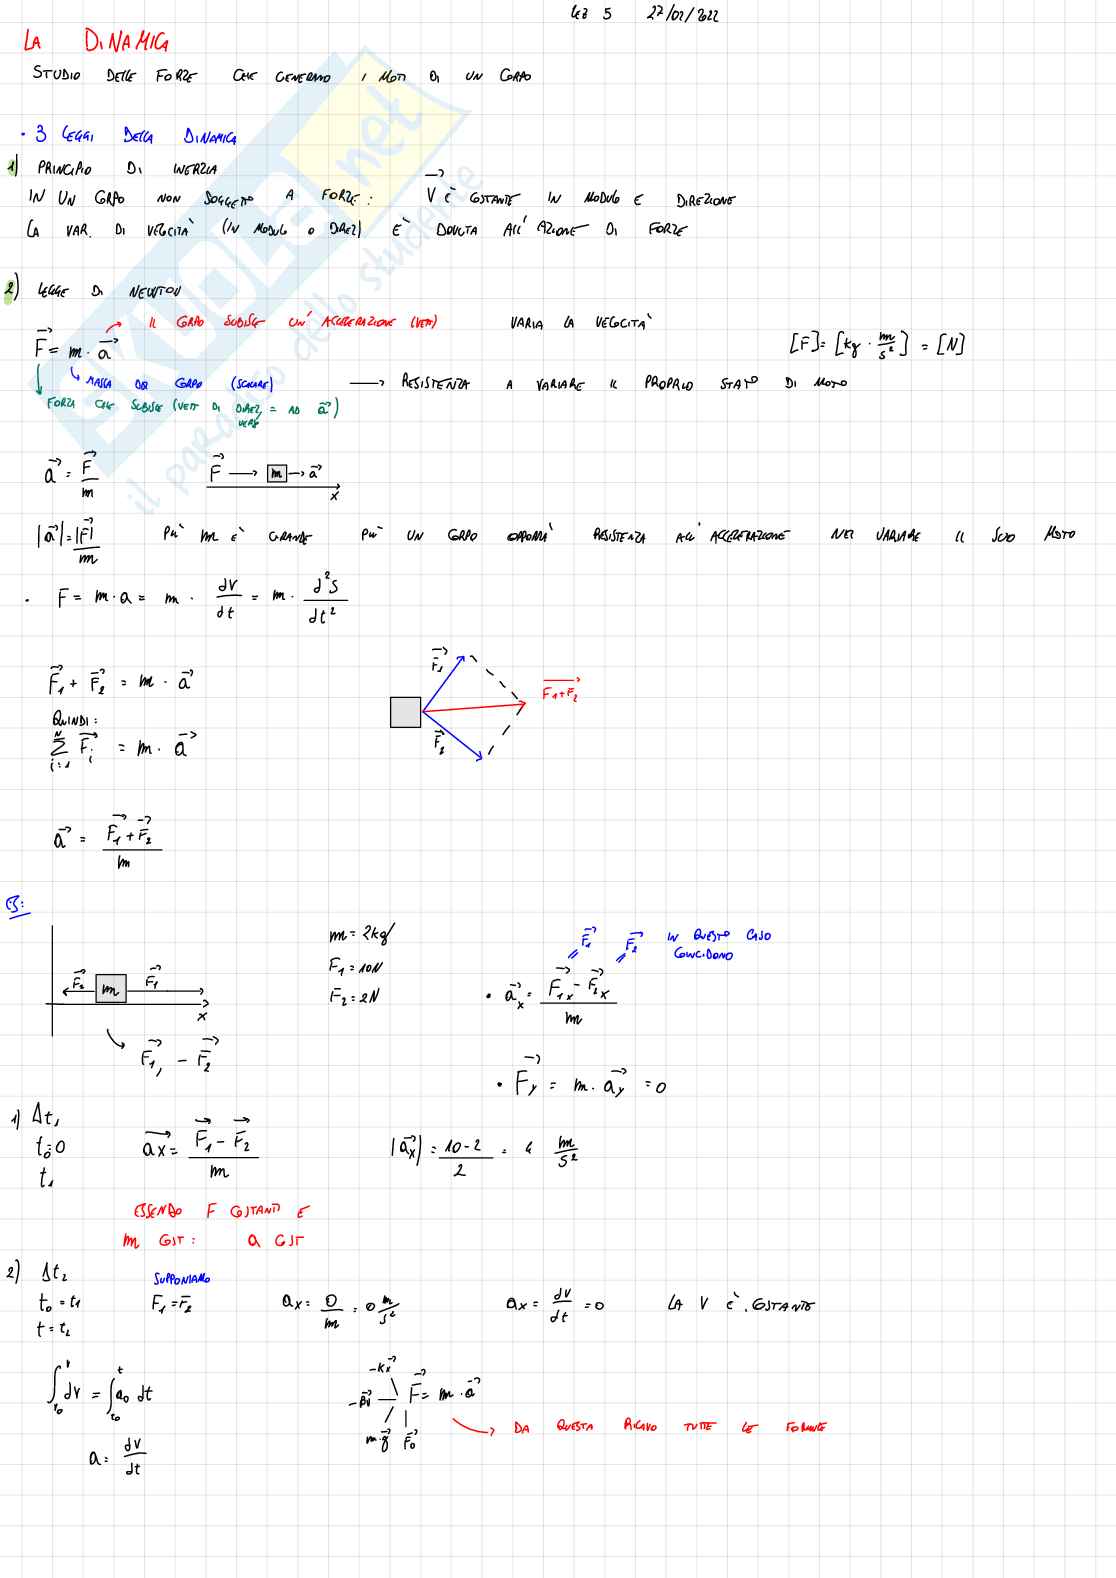 LEZ 5 27/02/2022
LA DINAMICA
STUDIO DELLE FORZE CHE GENERANO I MOTI DI UN CORPO
• 3 LEGGI DELLA DINAMICA
1) PRINCIPIO DI INERZIA
IN UN CORPO NON SOGGETTO A FORZE: V⃗ È COSTANTE IN MODULO E DIREZIONE
LA VAR. DI VELOCITÀ (IN MODULO O DIREZ) È DOVUTA ALL'AZIONE DI FORZE
2) LEGGE DI NEWTON
IL CORPO SUBISCE UN'ACCELERAZIONE (VETT) VARIA LA VELOCITÀ
F⃗ = m · a⃗ [F] = [kg · m/s²] = [N]
MASSA DEL CORPO (SCALARE) → RESISTENZA A VARIARE IL PROPRIO STATO DI MOTO
FORZA CHE SUBISCE (VETT DI DIREZ, VERSO = AD a⃗)
a⃗ = F⃗/m F⃗ → m → a⃗
x
|a⃗| = |F⃗|/m PIÙ m È GRANDE PIÙ UN CORPO OPPORRÀ RESISTENZA ALL'ACCELERAZIONE NEL VARIARE IL SUO MOTO
• F = m · a = m · dV/dt = m · d²S/dt²
F⃗₁ + F⃗₂ = m · a⃗ F⃗₁ F⃗₂ F₁+F₂
QUINDI:
N Σ i=1 F⃗i = m · a⃗
a⃗ = (F⃗₁ + F⃗₂)/m
ES:
F⃗₂ m F⃗₁ x
m = 2kg
F₁ = 10N
F₂ = 2N
F⃗₁ F⃗₂ IN QUESTO CASO COINCIDONO
• a⃗x = (F⃗₁x - F⃗₂x)/m
F⃗₁, - F⃗₂
• F⃗y = m · a⃗y = 0
1) Δt₁
t₀=0
t₁
a⃗x = (F⃗₁ - F⃗₂)/m |a⃗x| = (10-2)/2 = 4 m/s²
ESSENDO F COSTANTI E
m COST: a COST
2) Δt₂ SUPPONIAMO
t₀ = t₁ F₁ = F₂ ax = 0/m = 0 m/s² ax = dV/dt = 0 LA V È COSTANTE
t = t₂
∫ᵥ₀ᵛ dV = ∫ₜ₀ᵗ a₀ dt
-Kx⃗
-βv⃗ F⃗ = m · a⃗
m·g⃗ F⃗₀
DA QUESTA RICAVO TUTTE LE FORMULE
a = dV/dt
SKUOLA.net
il paradiso dello studente